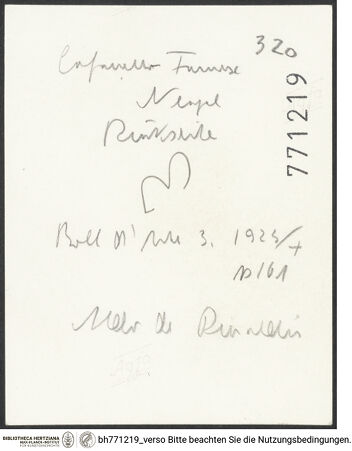 320
771219
Cofanetto Farnese
Neapel
Rückseite
Boll d'Arte 3. 1923/4
p 161
Aldo de Rinaldis
BIBLIOTHECA HERTZIANA
MAX-PLANCK-INSTITUT
FÜR KUNSTGESCHICHTE
bh771219_verso Bitte beachten Sie die Nutzungsbedingungen.